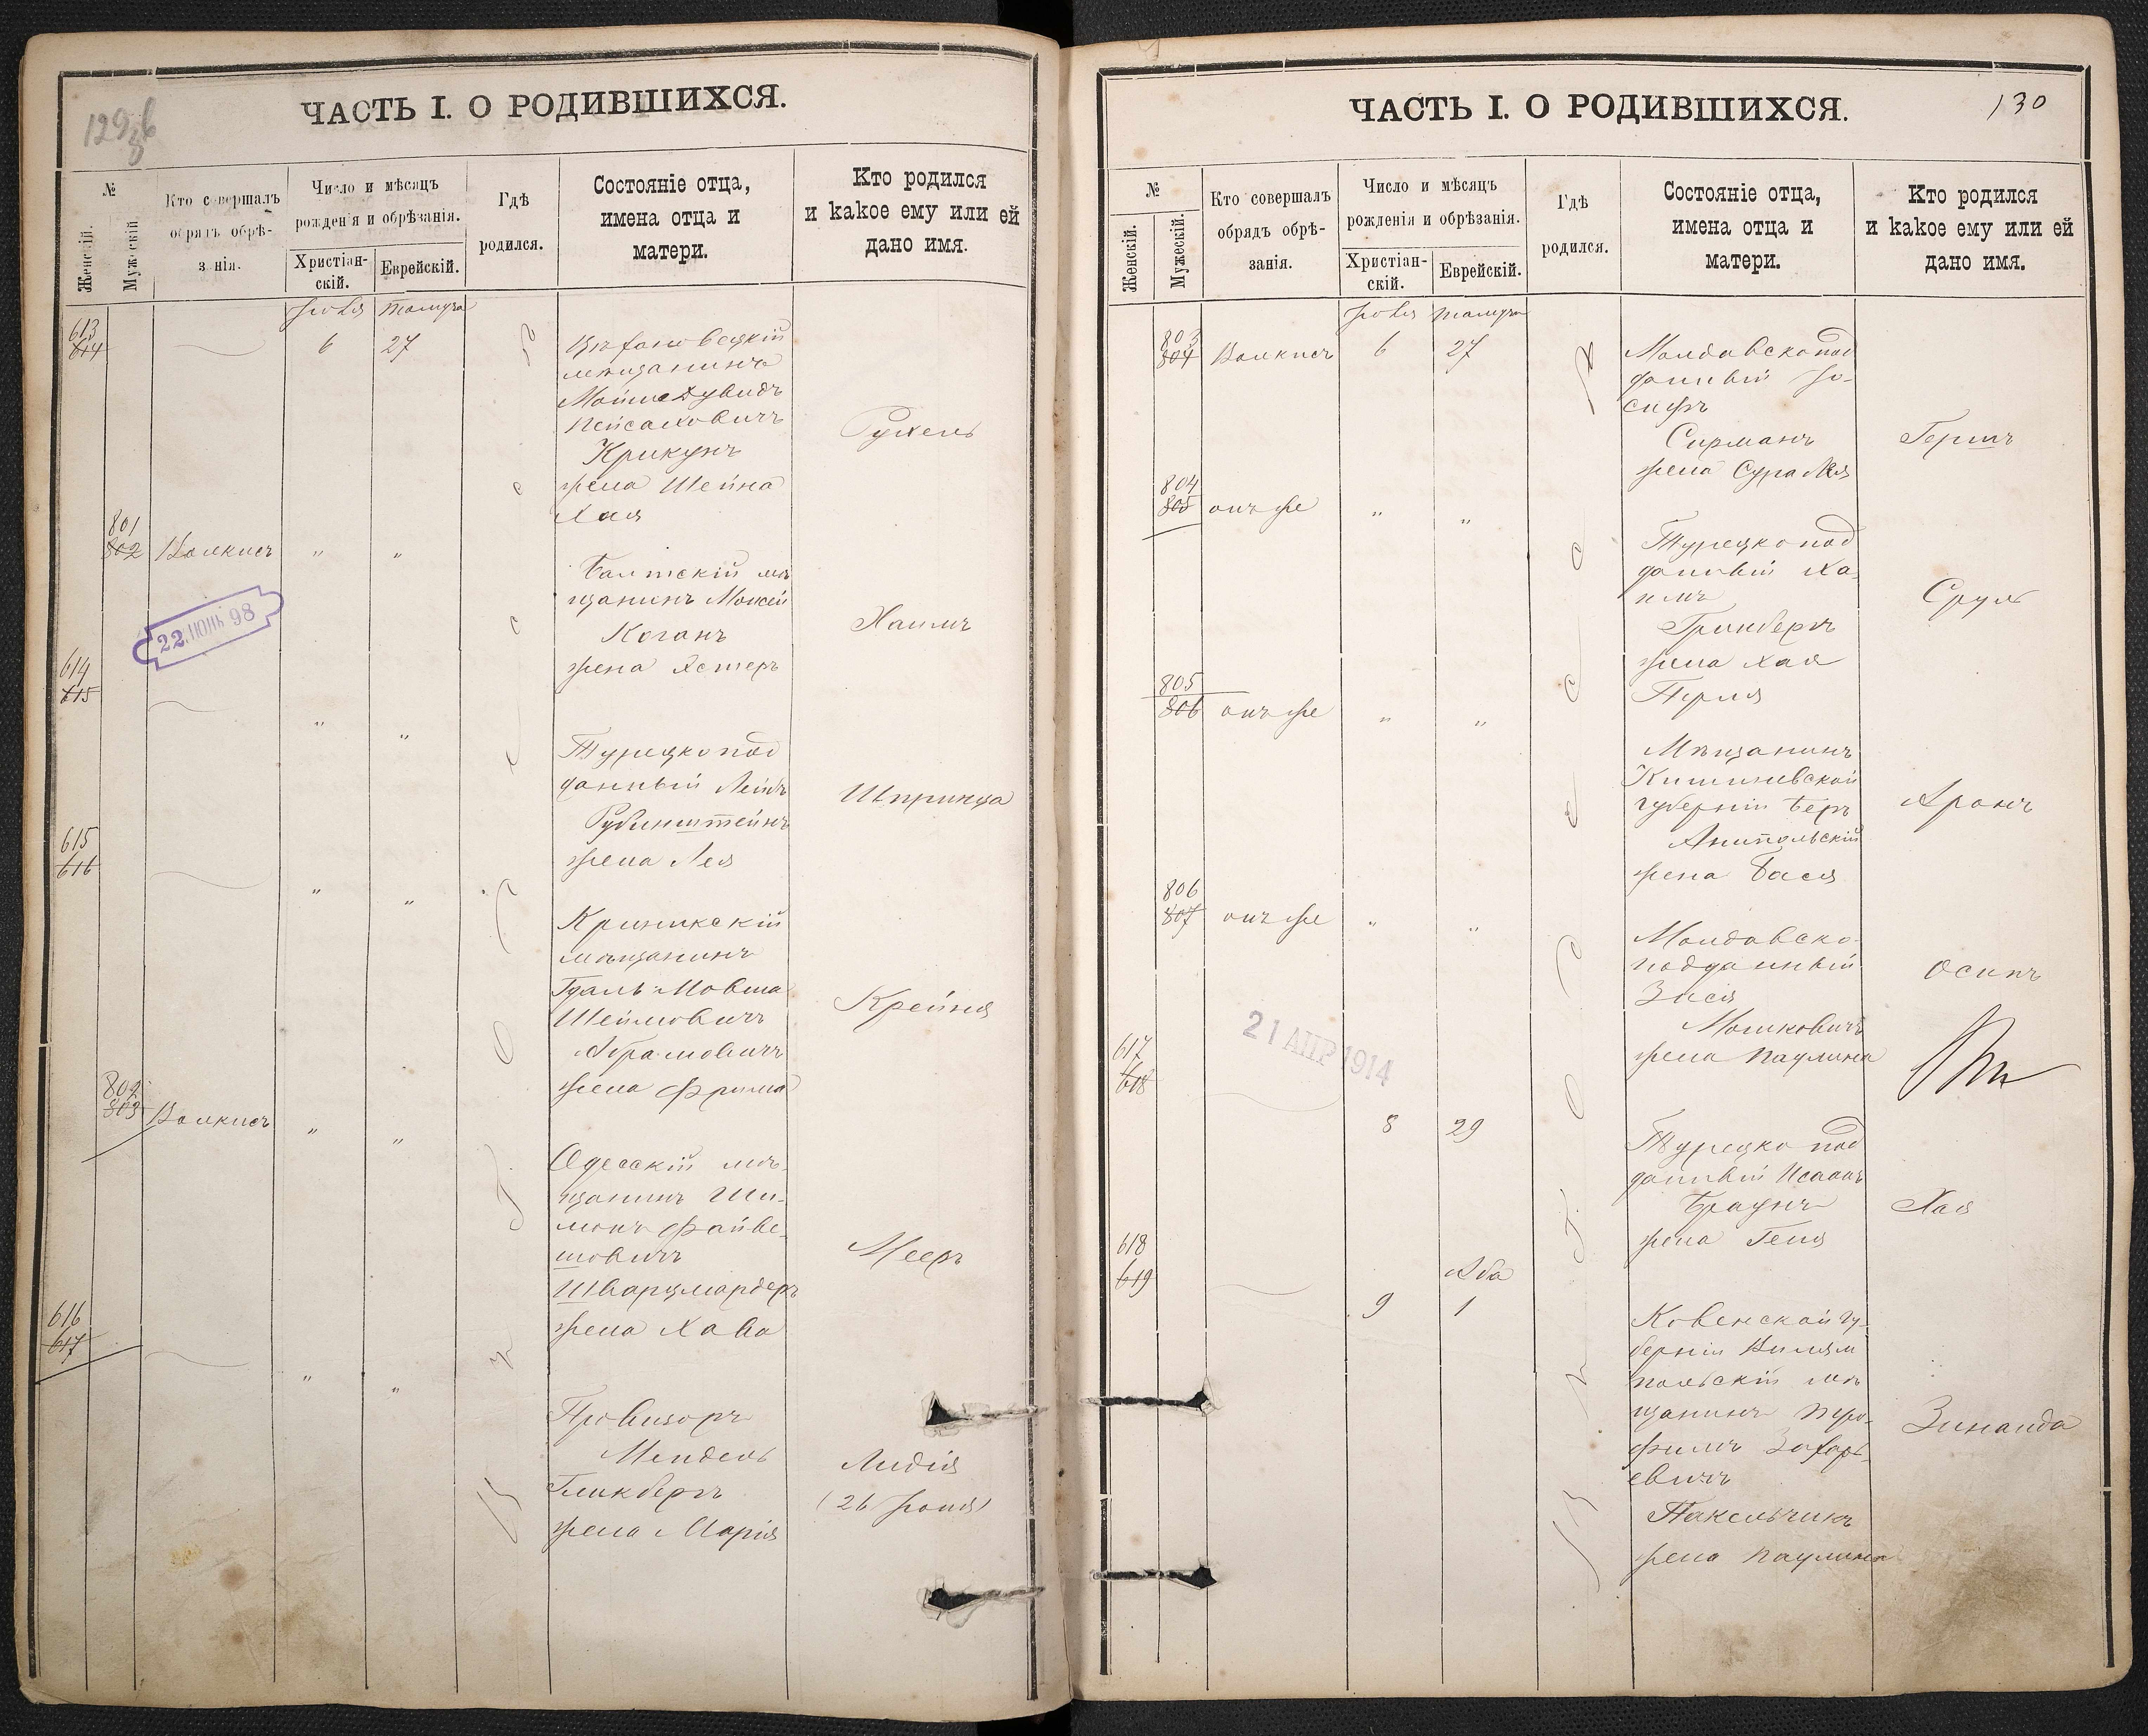 ЧАСТЬ I. О РОДИВШИХСЯ.
129
№
Женскій.
Мужескій
Кто совершалъ
обрядъ обрѣ-
занія.
Число и мѣсяцъ
рожденія и обрѣзанія.
Христіан-
скій.
Еврейскій.
Гдѣ
родился.
Состояніе отца,
имена отца и
матери.
Кто родился
и какое ему или ей
дано имя.
613
614
6
27
мѣщанинъ
Мошке Дувидъ
Пейсаховичъ
Крикунъ
жена Шейна
Хая
Рухель
801
802
Волкисъ
"
"
Балтскій мѣ
щанинъ Моисей
Коганъ
жена Эстеръ
Хаимъ
22. ІЮНЬ 98
614
615
"
"
Турецкопод
данный Лейбъ
Рубинштейнъ
жена Лея
Шпринца
615
616
"
"
мѣщанинъ
Гдаль-Мовша
Шеймовичъ
Абрамовичъ
жена Фрима
Крейня
802
803
Волкисъ
"
"
Одесскій мѣ-
щанинъ Ши-
монъ Файве-
шовичъ
Шварцмардеръ
жена Хава
Мееръ
616
617
"
"
Провизоръ
Мендель
Гликбергъ
жена Марія
Лидія
ЧАСТЬ I. О РОДИВШИХСЯ.
130
№
Женскій.
Мужескій.
Кто совершалъ
обрядъ обрѣ-
занія.
Число и мѣсяцъ
рожденія и обрѣзанія.
Христіан-
скій.
Еврейскій.
Гдѣ
родился.
Состояніе отца,
имена отца и
матери.
Кто родился
и какое ему или ей
дано имя.
803
804
Волкисъ
6
27
Молдавскопод
данный Іо-
сифъ
Сирманъ
жена Сура Лея
Гершъ
804
805
онъ же
"
"
Турецкопод
данный Ха-
имъ
Гринбергъ
жена Хая
Перля
Сруль
805
806
онъ же
"
"
Мѣщанинъ
Кишиневской
губерніи Беръ
Анипольскій
жена Бася
Аронъ
806
807
онъ же
"
"
Молдавско-
подданный
Зися
Мошковичъ
жена Паулина
Осипъ
21 АПР 1914
617
618
8
29
Турецко под
данный Исаакъ
Браунъ
жена Геня
Хая
618
619
Аба
9
1
Ковенской гу-
берніи Вилям
польскій мѣ
щанинъ
Захарь-
евичъ
Пакельчикъ
жена Паулина
Зинаида